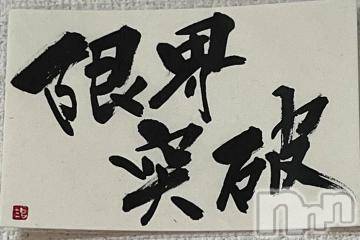 限界
突破